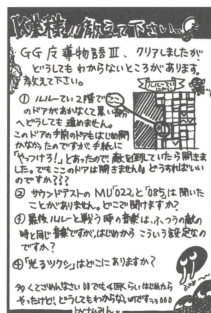 K先様!!教えて下さいっ。
GG 魔導物語Ⅲ、クリアしましたが
どうしてもわからないところがあります。
教えて下さい。
① ルルーてい2階で
のドアがあかなくて黒い部分
へどうしても進めません。
このドアの手前のドアもはじめ開
かなかったのですが手紙に
「やっつけろ!」とあったので、敵を倒していたら開きま
した。でもここのドアは開きません。どうすればいい
のですか???
② サウンドテストの MU'022、と'085、は聞いた
ことがありません。どこで聞けますか?
③ 最後ルルーと戦う時の音楽は、ふつうの敵の
時と同じ音楽ですが、はじめからこういう設定なの
ですか?
④「光るツクシ」はどこにありますか?
多くてごめんなさい
やったけど、どうしてもわからないのです